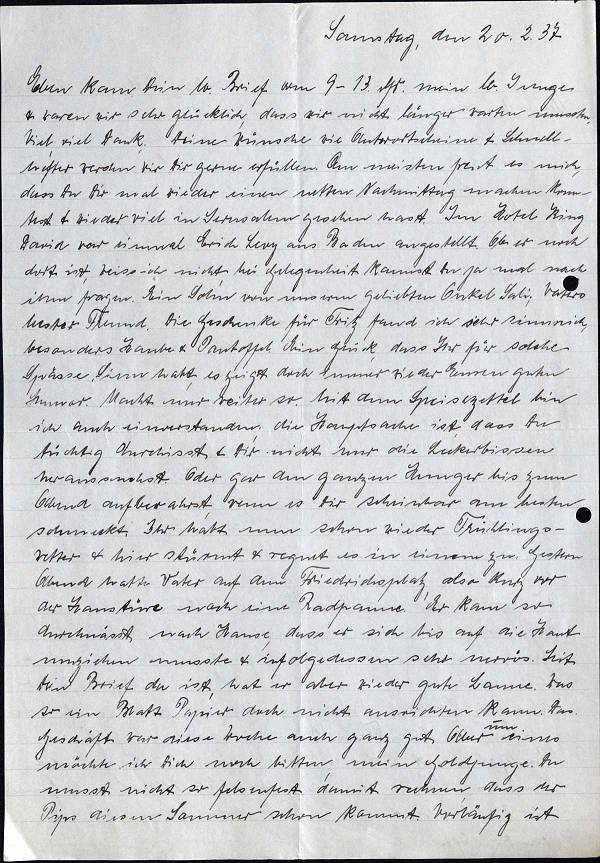 Samstag, den 20. 2. 37
Eben kam Dein lb. Brief vom 9 - 13. ds. mein lb. Junge
& waren wir sehr glücklich, dass wir nicht länger warten mussten.
Viel viel Dank. Deine Wünsche wie Antwortscheine & Schnell-
hefter werden wir Dir gerne erfüllen. Am meisten freut es mich,
dass Du Dir mal wieder einen netten Nachmittag machen konn-
test & wieder viel in Jerusalem gesehen hast. Im Hotel King
David war einmal Erich Levy aus Baden angestellt. Ob er noch
dort ist, weiss ich nicht bei Gelegenheit kannst Du ja mal nach
ihm fragen. Ein Sohn von unserem geliebten Onkel Saly, Vaters
bester Freund. Die Geschenke für Fritz fand ich sehr sinnreich,
besonders Haube & Pantoffel. Ein Glück, dass Ihr für solche
Spässe Sinn habt, es zeigt doch immer wieder Eueren guten
Humor. Macht nur weiter so. Mit dem Speisezettel bin
ich auch einverstanden, die Hauptsache ist, dass Du
tüchtig durchisst & Dir nicht nur die Leckerbissen
heraussuchst. Oder gar den ganzen Hunger bis zum
Abend aufbewahrst, wenn es Dir scheinbar am besten
schmeckt. Ihr habt nun schon wieder Frühlings-
wetter & hier stürmt & regnet es in einem zu. Gestern
Abend hatte Vater auf dem Friedrichsplatz, also kurz vor
der Haustüre noch eine Radpanne. Er kam so
durchnässt nach Hause, dass er sich bis auf die Haut
umziehen musste & infolgedessen sehr nervös. Seit
Dein Brief da ist, hat er aber wieder gute Laune. Was
so ein Blatt Papier doch nicht ausrichten kann. Das
Geschäft war diese Woche auch ganz gut. Aber um eines
möchte ich Dich noch bitten, mein Goldjunge. Du
musst nicht so felsenfest damit rechnen, dass der
Pips diesen Sommer schon kommt. Vorläufig ist